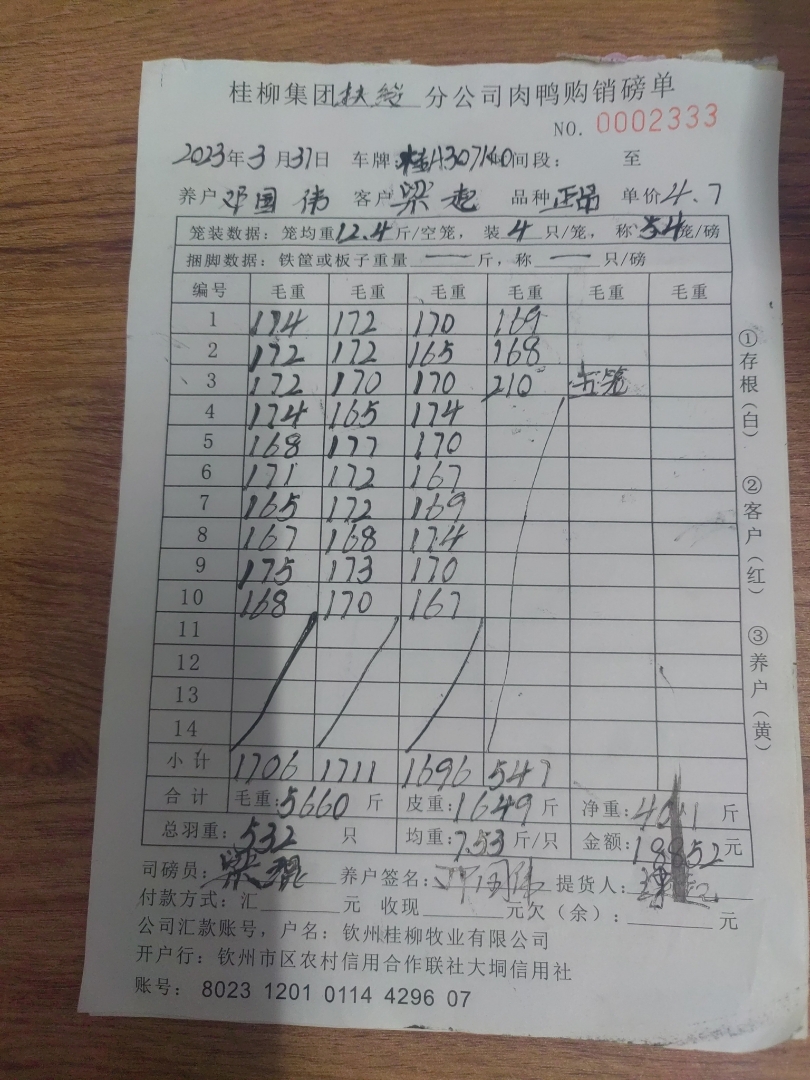 桂柳集团扶绥分公司肉鸭购销磅单
NO. 0002333
2023年3月31日 车牌:桂A30716 时间段: 至
养户 邓国伟 客户 梁 品种 正品 单价 4.7
笼装数据: 笼均重12.4斤/空笼, 装4只/笼, 称 4笼/磅
捆脚数据: 铁筐或板子重量 一 斤, 称 一 只/磅
编号 毛重 毛重 毛重 毛重 毛重 毛重
1 174 172 170 169
2 172 172 165 168
3 172 170 170 210 五笼
4 174 165 174
5 168 177 170
6 171 172 167
7 165 172 169
8 167 168 174
9 175 173 170
10 168 170 167
11
12
13
14
小计 1706 1711 1696 547
合计 毛重:5660斤 皮重:1649斤 净重:4011斤
总羽重:532只 均重:7.53斤/只 金额:18852元
司磅员: 梁 养户签名: 邓国伟 提货人:
付款方式: 汇 元 收现 元欠(余): 元
公司汇款账号, 户名: 钦州桂柳牧业有限公司
开户行: 钦州市区农村信用合作联社大垌信用社
账号: 8023 1201 0114 4296 07
①存根(白)
②客户(红)
③养户(黄)